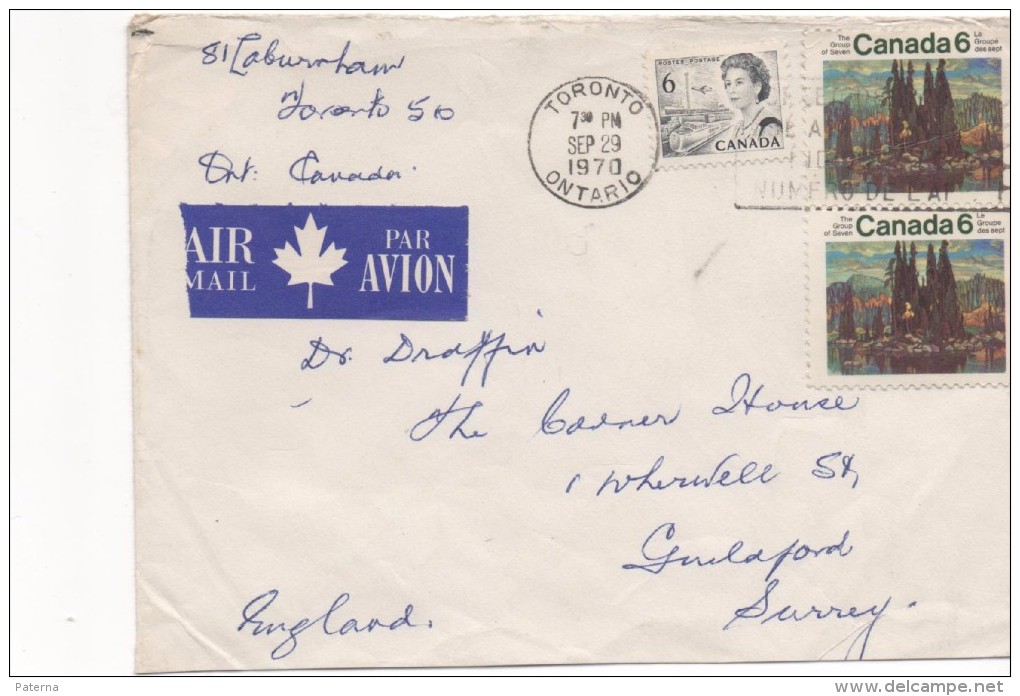 81 Laburnham
Toronto 510
Ont. Canada.
POSTES-POSTAGE
6
CANADA
TORONTO
7³⁰ PM
SEP 29
1970
ONTARIO
The Group of Seven
Canada 6
Le Groupe des sept
NUMÉRO DE L'AP
The Group of Seven
Canada 6
Le Groupe des sept
AIR MAIL
PAR AVION
Dr. Draffin
The Corner House
1 Wherwell St,
Guildford
Surrey.
England.
Paterna
delcampe.net